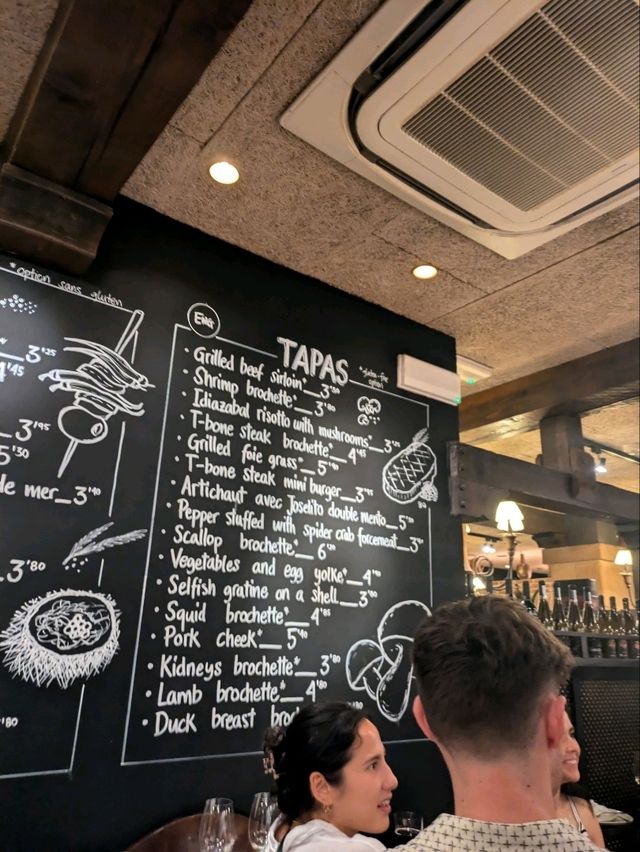 *option sans gluten
3'25
4'45
3'95
5'30
de mer__3'40
3'80
'80
Eng
TAPAS
*gluten-free
option
• Grilled beef sirloin*__3'80
• Shrimp brochette*__3'80
• Idiazabal risotto with mushrooms*__3'25
• T-bone steak brochette*__4'45
• Grilled foie grass*__5'40
• T-bone steak mini burger__3'95
• Artichaut avec Joselito double mento__5'30
• Pepper stuffed with spider crab forcement__3'40
• Scallop brochette*__6'20
• Vegetables and egg yolke*__4'40
• Selfish gratine on a shell__3'80
• Squid brochette*__4'85
• Pork cheek*__5'40
• Kidneys brochette*__3'80
• Lamb brochette*__4'80
• Duck breast bro '80